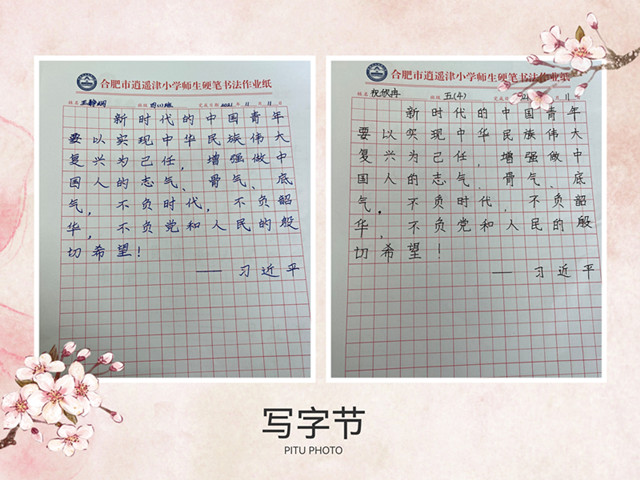 合肥市逍遥津小学师生硬笔书法作业纸
新时代的中国青年
要以实现中华民族伟大
复兴为己任，增强做中
国人的志气、骨气、底
气，不负时代，不负韶
华，不负党和人民的殷
切希望！
——习近平
合肥市逍遥津小学师生硬笔书法作业纸
姓名 祝欣冉 班级 五(4)
新时代的中国青年
要以实现中华民族伟大
复兴为己任，增强做中
国人的志气、骨气、底
气。不负时代，不负韶
华，不负党和人民的殷
切希望！
——习近平
写字节
PITU PHOTO